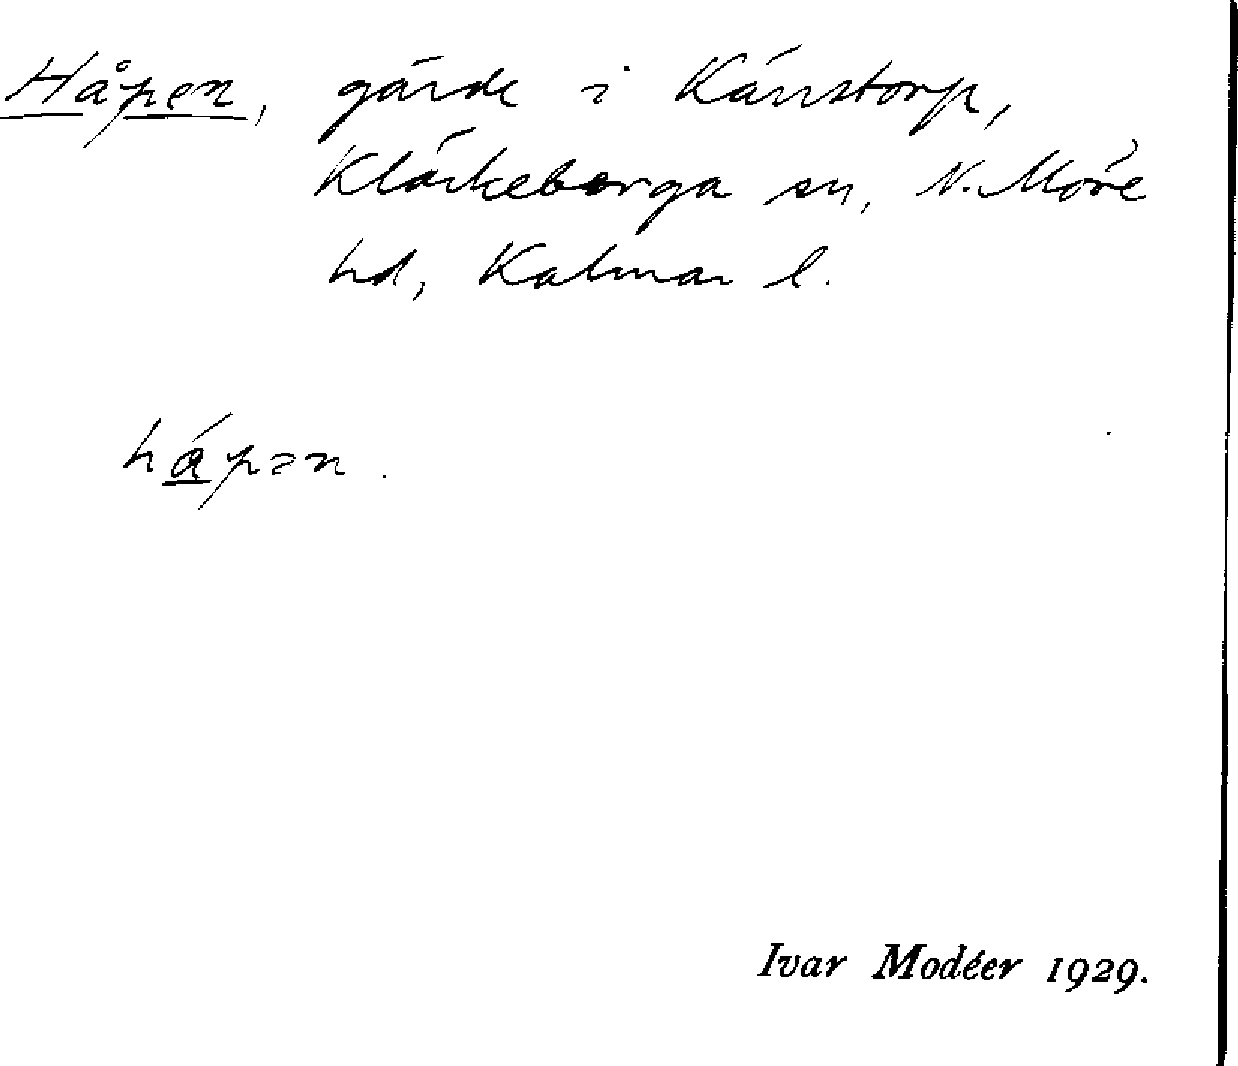 Håpen, gärde i Kärrstorp,
Kläckeberga sn, N. Möre
hd, Kalmar l.
hápən.
Ivar Modéer 1929.